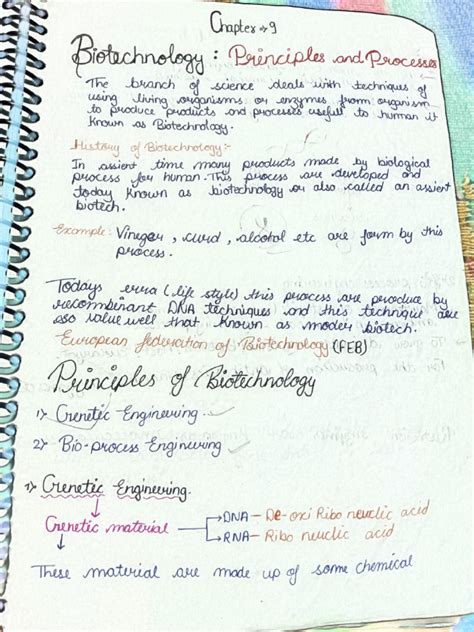 Chapter → 9
Biotechnology : Principles and Processes
The branch of science deals with techniques of
using living organisms or enzymes from organism
to produce products and processes usefull to human it
known as Biotechnology.
History of Biotechnology :-
In assient time many products made by biological
process for human. This process are developed and
today known as biotechnology or also called an assient
biotech.
Example : Vinegar , curd , alcohol etc are form by this
process.
Todays erra ( life style) this process are produce by
recombinant DNA techniques and this technique are
so value well that known as moder biotech.
European federation of Biotechnology (FEB)
Principles of Biotechnology
1) Genetic Engineering
2) Bio-process Engineering
1) Genetic Engineering.
Genetic material → DNA – De-oxi Ribo neuclic acid
→ RNA – Ribo neuclic acid
These material are made up of some chemical